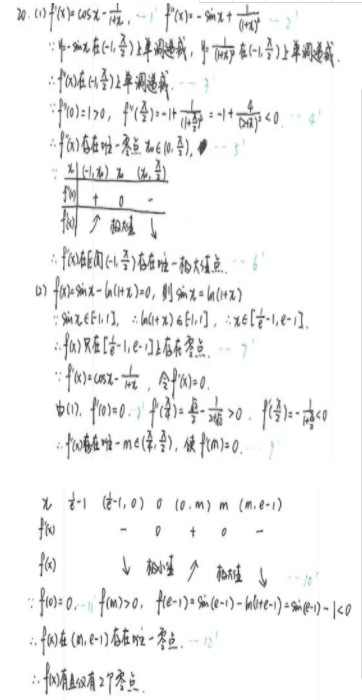 20. (1) f'(x)=cosx-1/(1+x), --1' f''(x)=-sinx+1/(1+x)² --2'
∵ y=-sinx在(-1,π/2)上单调递减, y=1/(1+x)²在(-1,π/2)上单调递减,
∴ f''(x)在(-1,π/2)上单调递减. --3'
∵ f''(0)=1>0, f''(π/2)=-1+1/(1+π/2)²=-1+4/(2+π)²<0. --4'
∴ f''(x)存在唯一零点x₀∈(0,π/2), --5'
∴ x (-1,x₀) x₀ (x₀,π/2)
f''(x) + 0 -
f'(x) ↗ 极大值 ↓
∴ f'(x)在区间(-1,π/2)存在唯一极大值点. --6'
(2) f(x)=sinx-ln(1+x)=0, 则sinx=ln(1+x)
∵ sinx∈[-1,1], ∴ ln(1+x)∈[-1,1], ∴ x∈[1/e-1,e-1].
∴ f(x)只在[1/e-1,e-1]上存在零点. --7'
∵ f'(x)=cosx-1/(1+x), 令f'(x)=0.
由(1), f'(0)=0. f'(π/4)=√2/2- >0, f'(π/2)=-1/(1+π/2)<0
∴ f'(x)存在唯一m∈(π/4,π/2), 使f'(m)=0. --9'
x 1/e-1 (1/e-1,0) 0 (0,m) m (m,e-1)
f'(x) - 0 + 0 -
f(x) ↓ 极小值 ↗ 极大值 ↓ --10'
∵ f(0)=0, --11' f(m)>0, f(e-1)=sin(e-1)-ln(1+e-1)=sin(e-1)-1<0
∴ f(x)在(m,e-1)存在唯一零点. --12'
∴ f(x)有且仅有2个零点.